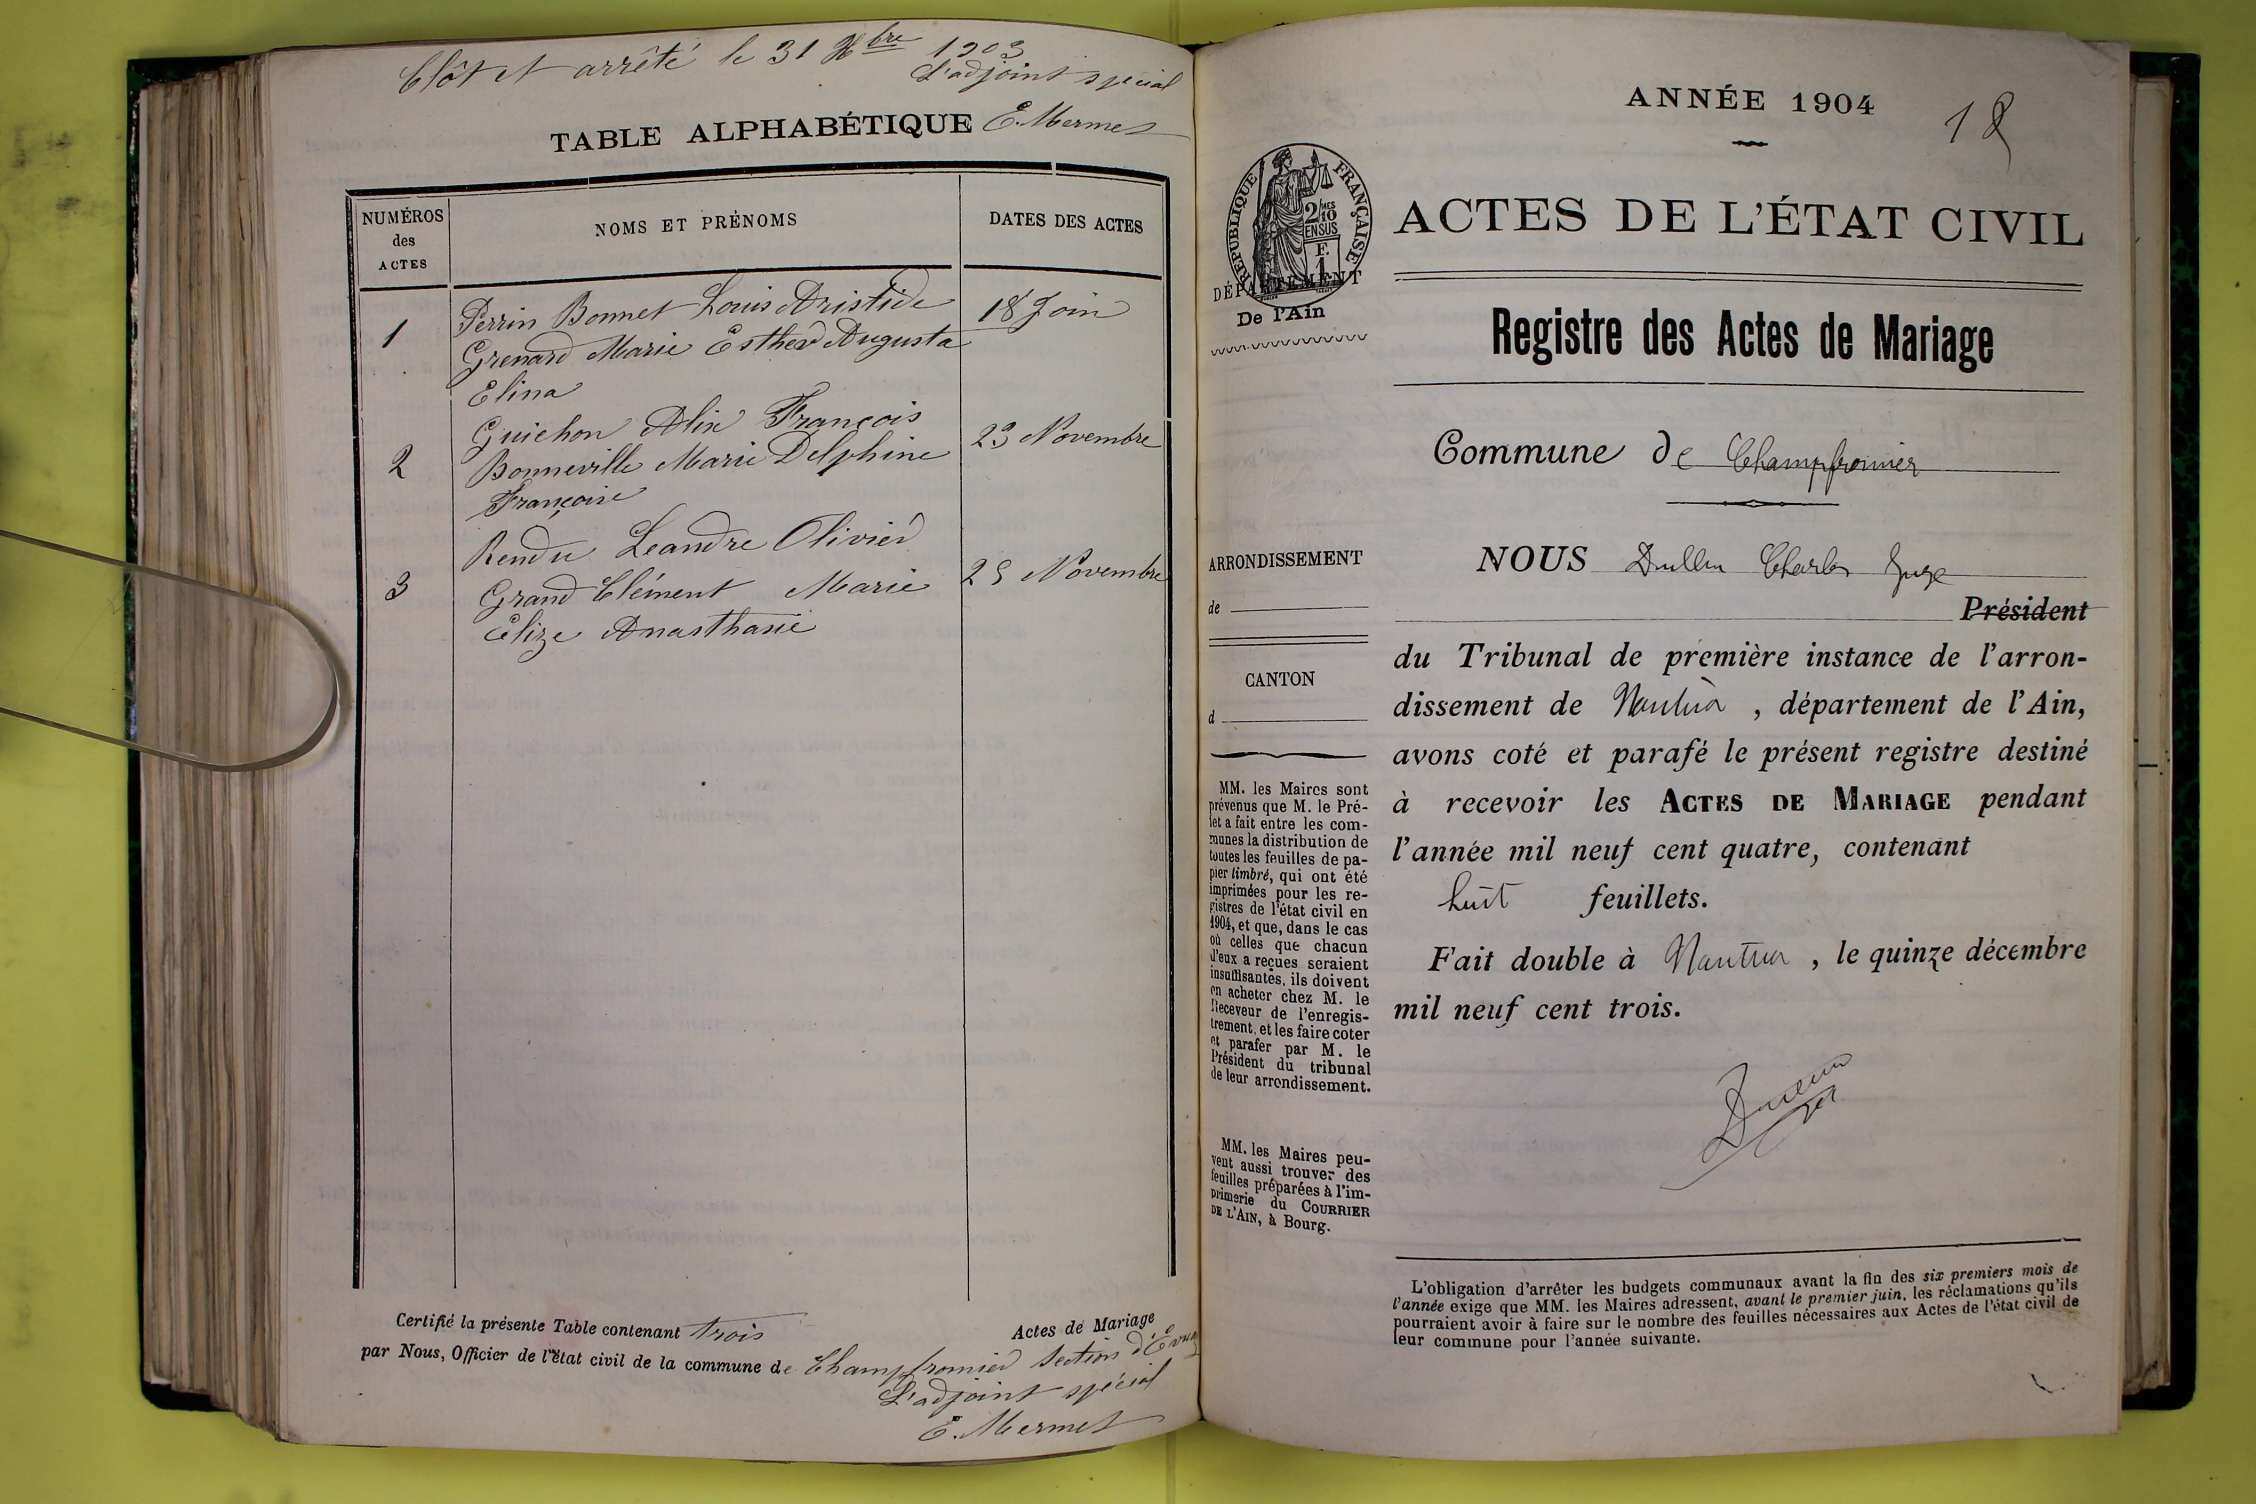 Clôt et arrêté le 31 Xbre 1903
L'adjoint spécial
E. Mermet
TABLE ALPHABÉTIQUE
NUMÉROS des ACTES
NOMS ET PRÉNOMS
DATES DES ACTES
1
Perrin Bonnet Louis Aristide
18 Join
Grenard Marie Esther Augusta
Elina
2
Guichon Alix François
23 Novembre
Bonneville Marie Delphine
Françoise
3
Rendu Leandre Olivier
25 Novembre
Grand Clément Marie
Elize Anasthasie
Certifié la présente Table contenant trois Actes de Mariage
par Nous, Officier de l'état civil de la commune de Champfromier section d'Évuaz
L'adjoint spécial
E. Mermet
ANNÉE 1904
18
RÉPUBLIQUE FRANÇAISE
2/10 EN SUS
DÉPARTEMENT
De l'Ain
ACTES DE L'ÉTAT CIVIL
Registre des Actes de Mariage
Commune de Champfromier
ARRONDISSEMENT
de
CANTON
d
MM. les Maires sont
prévenus que M. le Pré-
fet a fait entre les com-
munes la distribution de
toutes les feuilles de pa-
pier timbré, qui ont été
imprimées pour les re-
gistres de l'état civil en
1904, et que, dans le cas
où celles que chacun
d'eux a reçues seraient
insuffisantes, ils doivent
en acheter chez M. le
Receveur de l'enregis-
trement, et les faire coter
et parafer par M. le
Président du tribunal
de leur arrondissement.
MM. les Maires peu-
vent aussi trouver des
feuilles préparées à l'im-
primerie du COURRIER
DE L'AIN, à Bourg.
NOUS Charles Juge
Président
du Tribunal de première instance de l'arron-
dissement de Nantua, département de l'Ain,
avons coté et parafé le présent registre destiné
à recevoir les ACTES DE MARIAGE pendant
l'année mil neuf cent quatre, contenant
huit feuillets.
Fait double à Nantua, le quinze décembre
mil neuf cent trois.
L'obligation d'arrêter les budgets communaux avant la fin des six premiers mois de
l'année exige que MM. les Maires adressent, avant le premier juin, les réclamations qu'ils
pourraient avoir à faire sur le nombre des feuilles nécessaires aux Actes de l'état civil de
leur commune pour l'année suivante.